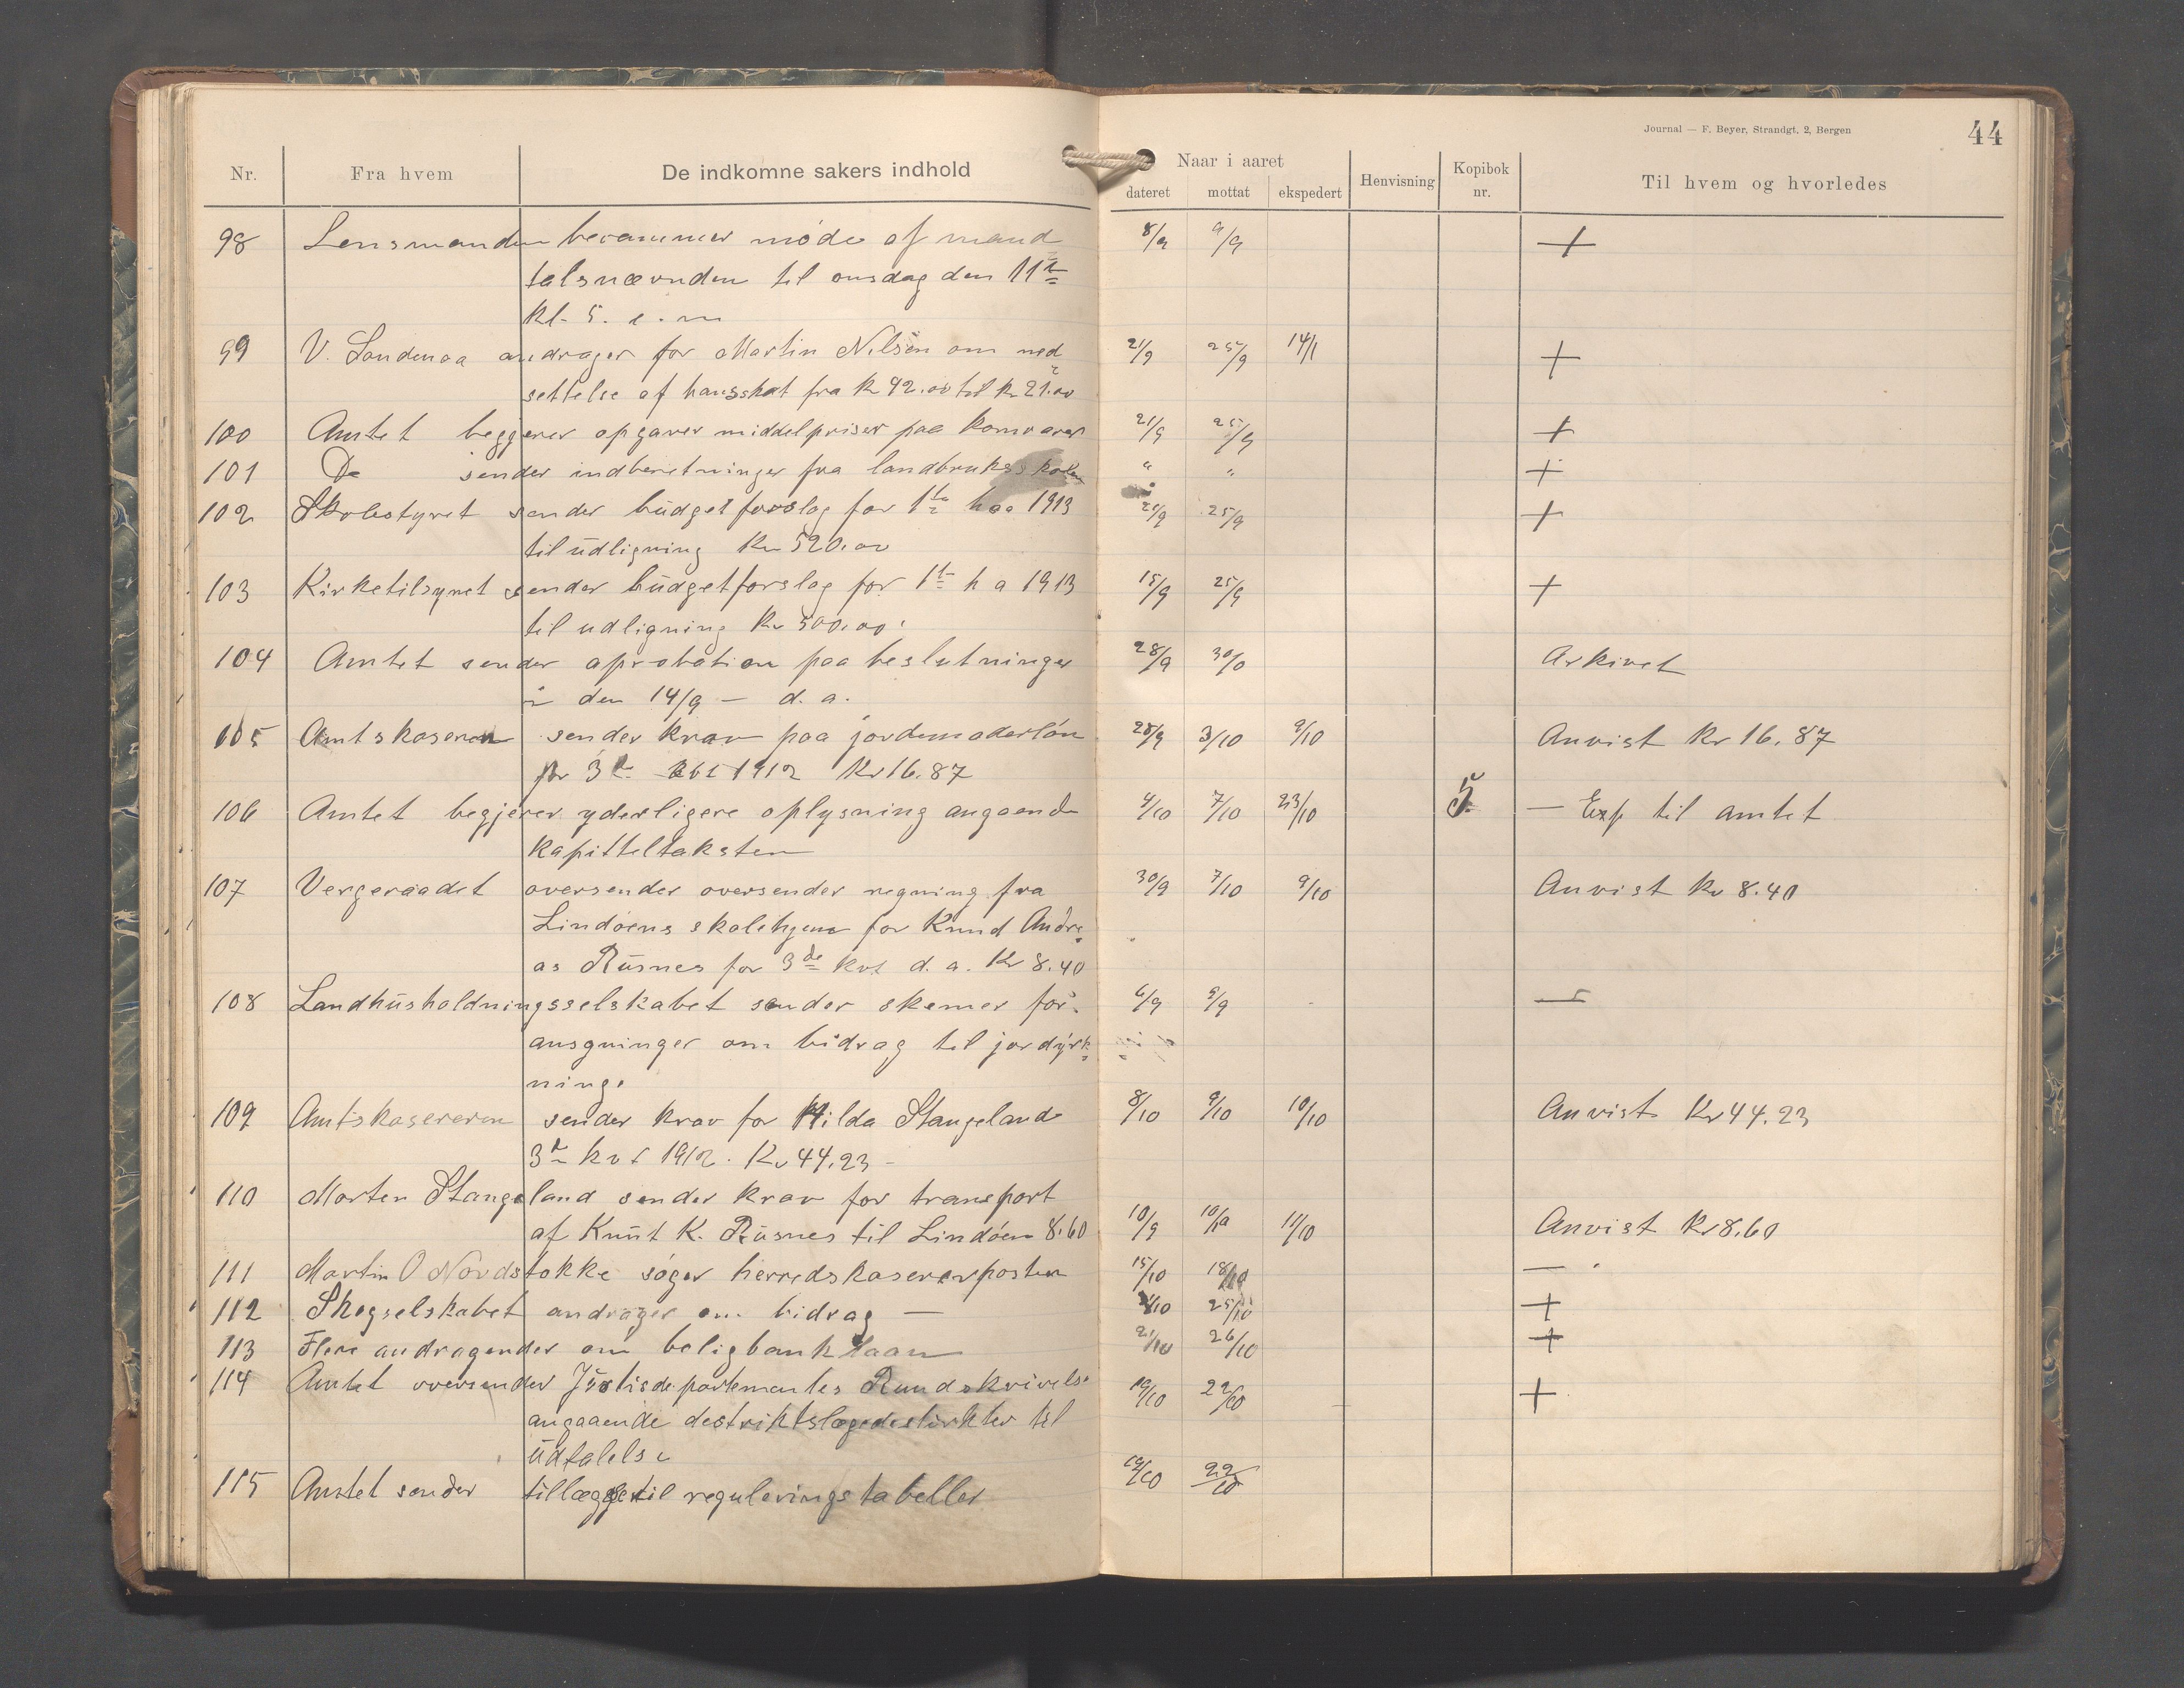 Journal — F. Beyer, Strandgt. 2, Bergen
44
Nr. Fra hvem De indkomne sakers indhold Naar i aaret Henvisning Kopibok nr. Til hvem og hvorledes
dateret mottat ekspedert
98 Lensmanden berammer møde af mand 8/9 9/9 +
talsnævnden til onsdag den 11te
kl. 5. e. m
99 V. Sandenaa andrager for Martin Nilsen om ned 21/9 25/9 14/1 +
settelse af hansskat fra Kr 42.00 til Kr 21.00
100 Amtet beggerer opgaver middelpriser paa kornvarer 21/9 25/9 +
101 Do sender indberetninger fra landbruksskolen " " +
102 Skolestyret sender büdgetforslag for 1te haa 1913 21/9 25/9 +
til üdligning Kr 520.00
103 Kirketilsynet sender büdgetforslag for 1te h a 1913 15/9 25/9 +
til udligning Kr 500.00.
104 Amtet sender aprobation paa beslutninger 28/9 30/9 Arkivet
i den 14/9 — d. a.
105 Amtskaseren sender krav paa jordemoderløn 28/9 3/10 9/10 Anvist Kr 16.87
for 3de kvt 1912 Kr 16.87
106 Amtet begjerer yderligere oplysning angaende 4/10 7/10 23/10 5 — Exp til amtet
kapitteltaksten
107 Vergeraadet oversender oversender regning fra 30/9 7/10 9/10 Anvist Kr 8.40
Lindøens skolehjem for Knud Andre
as Rüsnes for 3de kvt d. a. Kr 8.40
108 Landhüsholdningsselskabet sender skemer for 6/9 9/9 —
ansgninger om bidrag til jordyrk
ning.
109 Amtskasereren sender krav for Hilda Stangeland 8/10 9/10 10/10 Anvist Kr 44.23
3de kvt 1912. Kr 44.23 -
110 Morten Stangeland sender krav for transport
af Knüt K. Rüsnes til Lindøen 8.60 10/9 10/10 11/10 Anvist Kr 8.60
111 Martin O Nordstokke søger herredskasererposten 15/10 18/10 —
112 Skogselskabet andrager om bidrag — 25/10 +
113 Flere andragender om boligbanklaan 21/10 26/10 +
114 Amtet oversender Jüstisdepartementes Rundskrivelse 19/10 22/10 +
angaaende destriktslægedestirkter til
üdtalelse
115 Amtet sender tillægger til regulerings tabeller 19/10 22/10